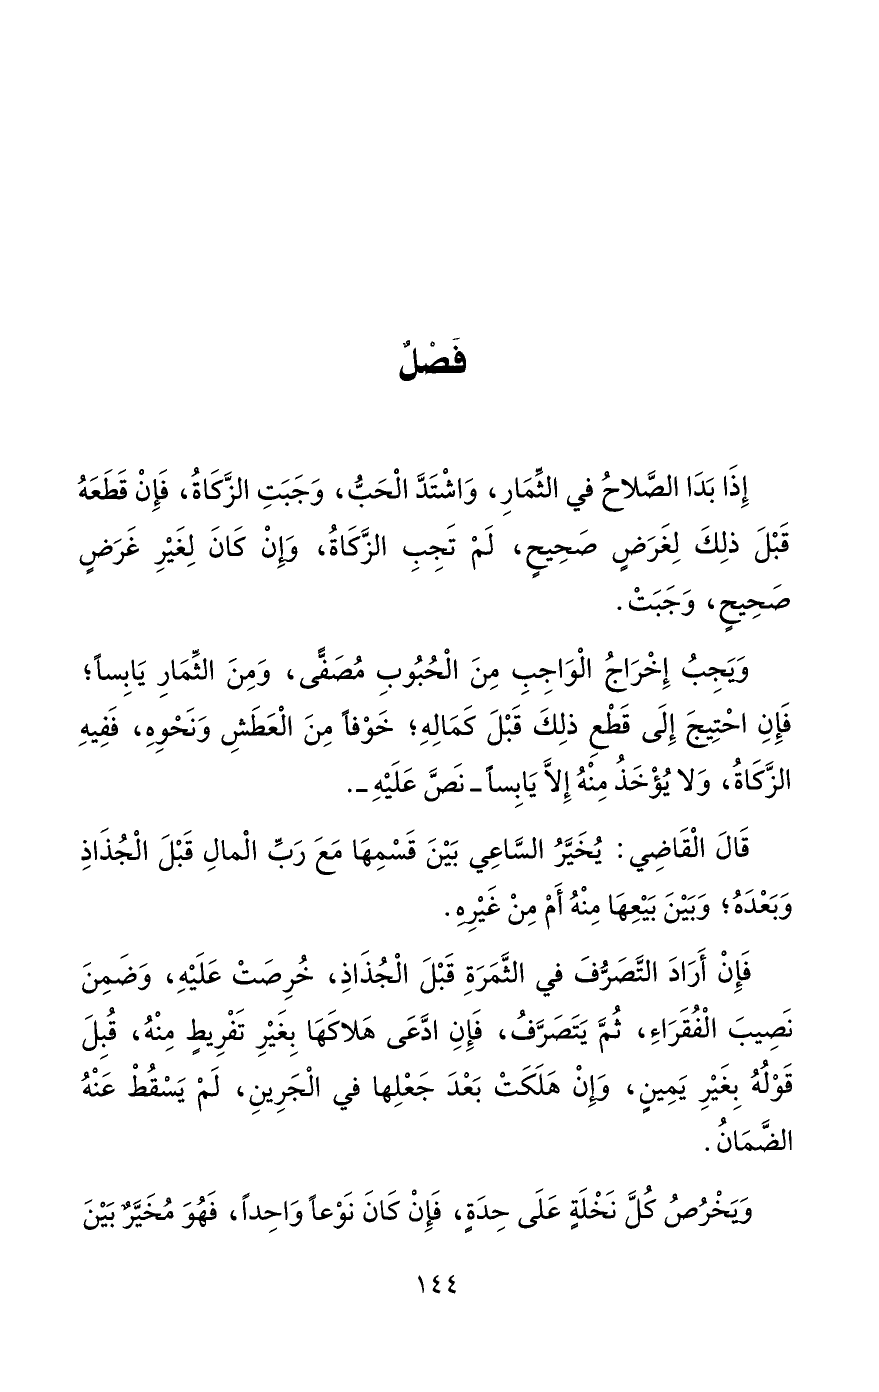 فَصْلٌ
إِذَا بَدَا الصَّلاحُ في الثِّمَارِ، وَاشْتَدَّ الْحَبُّ، وَجَبَتِ الزَّكَاةُ، فَإِنْ قَطَعَهُ
قَبْلَ ذلِكَ لِغَرَضٍ صَحِيحٍ، لَمْ تَجِبِ الزَّكَاةُ، وَإِنْ كَانَ لِغَيْرِ غَرَضٍ
صَحِيحٍ، وَجَبَتْ.
وَيَجِبُ إِخْرَاجُ الْوَاجِبِ مِنَ الْحُبُوبِ مُصَفًّى، وَمِنَ الثِّمَارِ يَابِساً؛
فَإِنِ احْتِيجَ إِلَى قَطْعِ ذلِكَ قَبْلَ كَمَالِهِ؛ خَوْفاً مِنَ الْعَطَشِ وَنَحْوِهِ، فَفِيهِ
الزَّكَاةُ، وَلا يُؤْخَذُ مِنْهُ إِلاَّ يَابِساً ـ نَصَّ عَلَيْهِ ـ.
قَالَ الْقَاضِي: يُخَيَّرُ السَّاعِي بَيْنَ قَسْمِهَا مَعَ رَبِّ الْمالِ قَبْلَ الْجُذَاذِ
وَبَعْدَهُ؛ وَبَيْنَ بَيْعِهَا مِنْهُ أَمْ مِنْ غَيْرِهِ.
فَإِنْ أَرَادَ التَّصَرُّفَ في الثَّمَرَةِ قَبْلَ الْجُذَاذِ، خُرِصَتْ عَلَيْهِ، وَضَمِنَ
نَصِيبَ الْفُقَرَاءِ، ثُمَّ يَتَصَرَّفُ، فَإِنِ ادَّعَى هَلاكَهَا بِغَيْرِ تَفْرِيطٍ مِنْهُ، قُبِلَ
قَوْلُهُ بِغَيْرِ يَمِينٍ، وَإِنْ هَلَكَتْ بَعْدَ جَعْلِها في الْجَرِينِ، لَمْ يَسْقُطْ عَنْهُ
الضَّمَانُ.
وَيَخْرُصُ كُلَّ نَخْلَةٍ عَلَى حِدَةٍ، فَإِنْ كَانَ نَوْعاً وَاحِداً، فَهُوَ مُخَيَّرٌ بَيْنَ
١٤٤